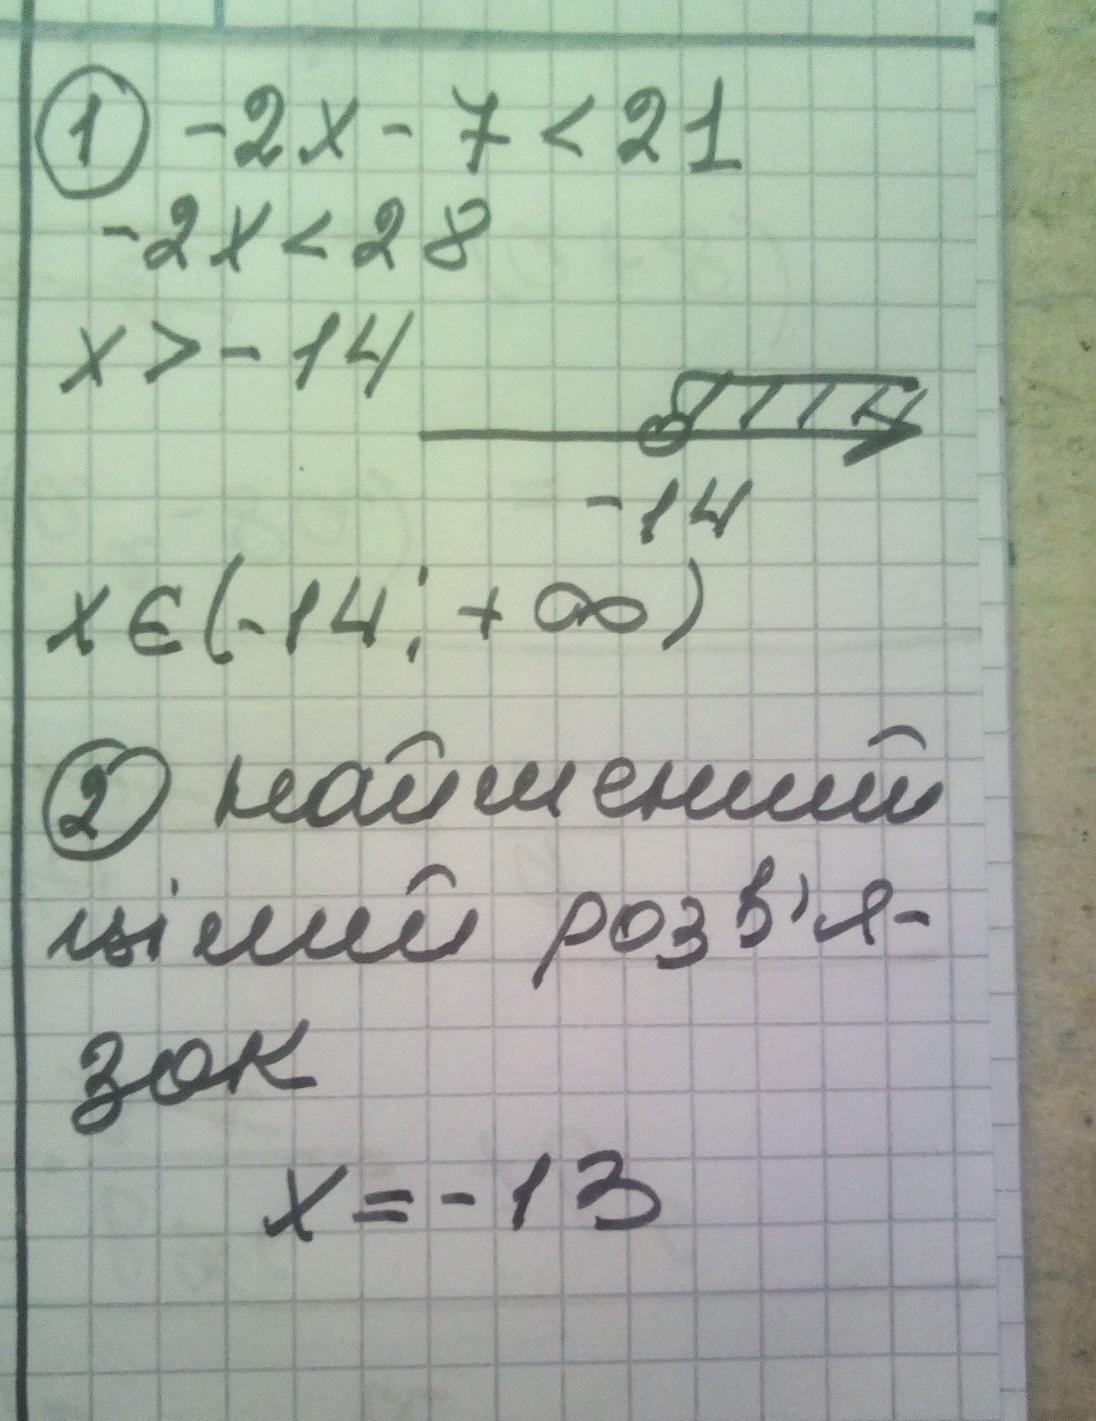 1 -2x - 7 < 21
-2x < 28
x > -14
-14
x ∈ (-14; +∞)
2 найменший
цілий розв'я-
зок
x = -13